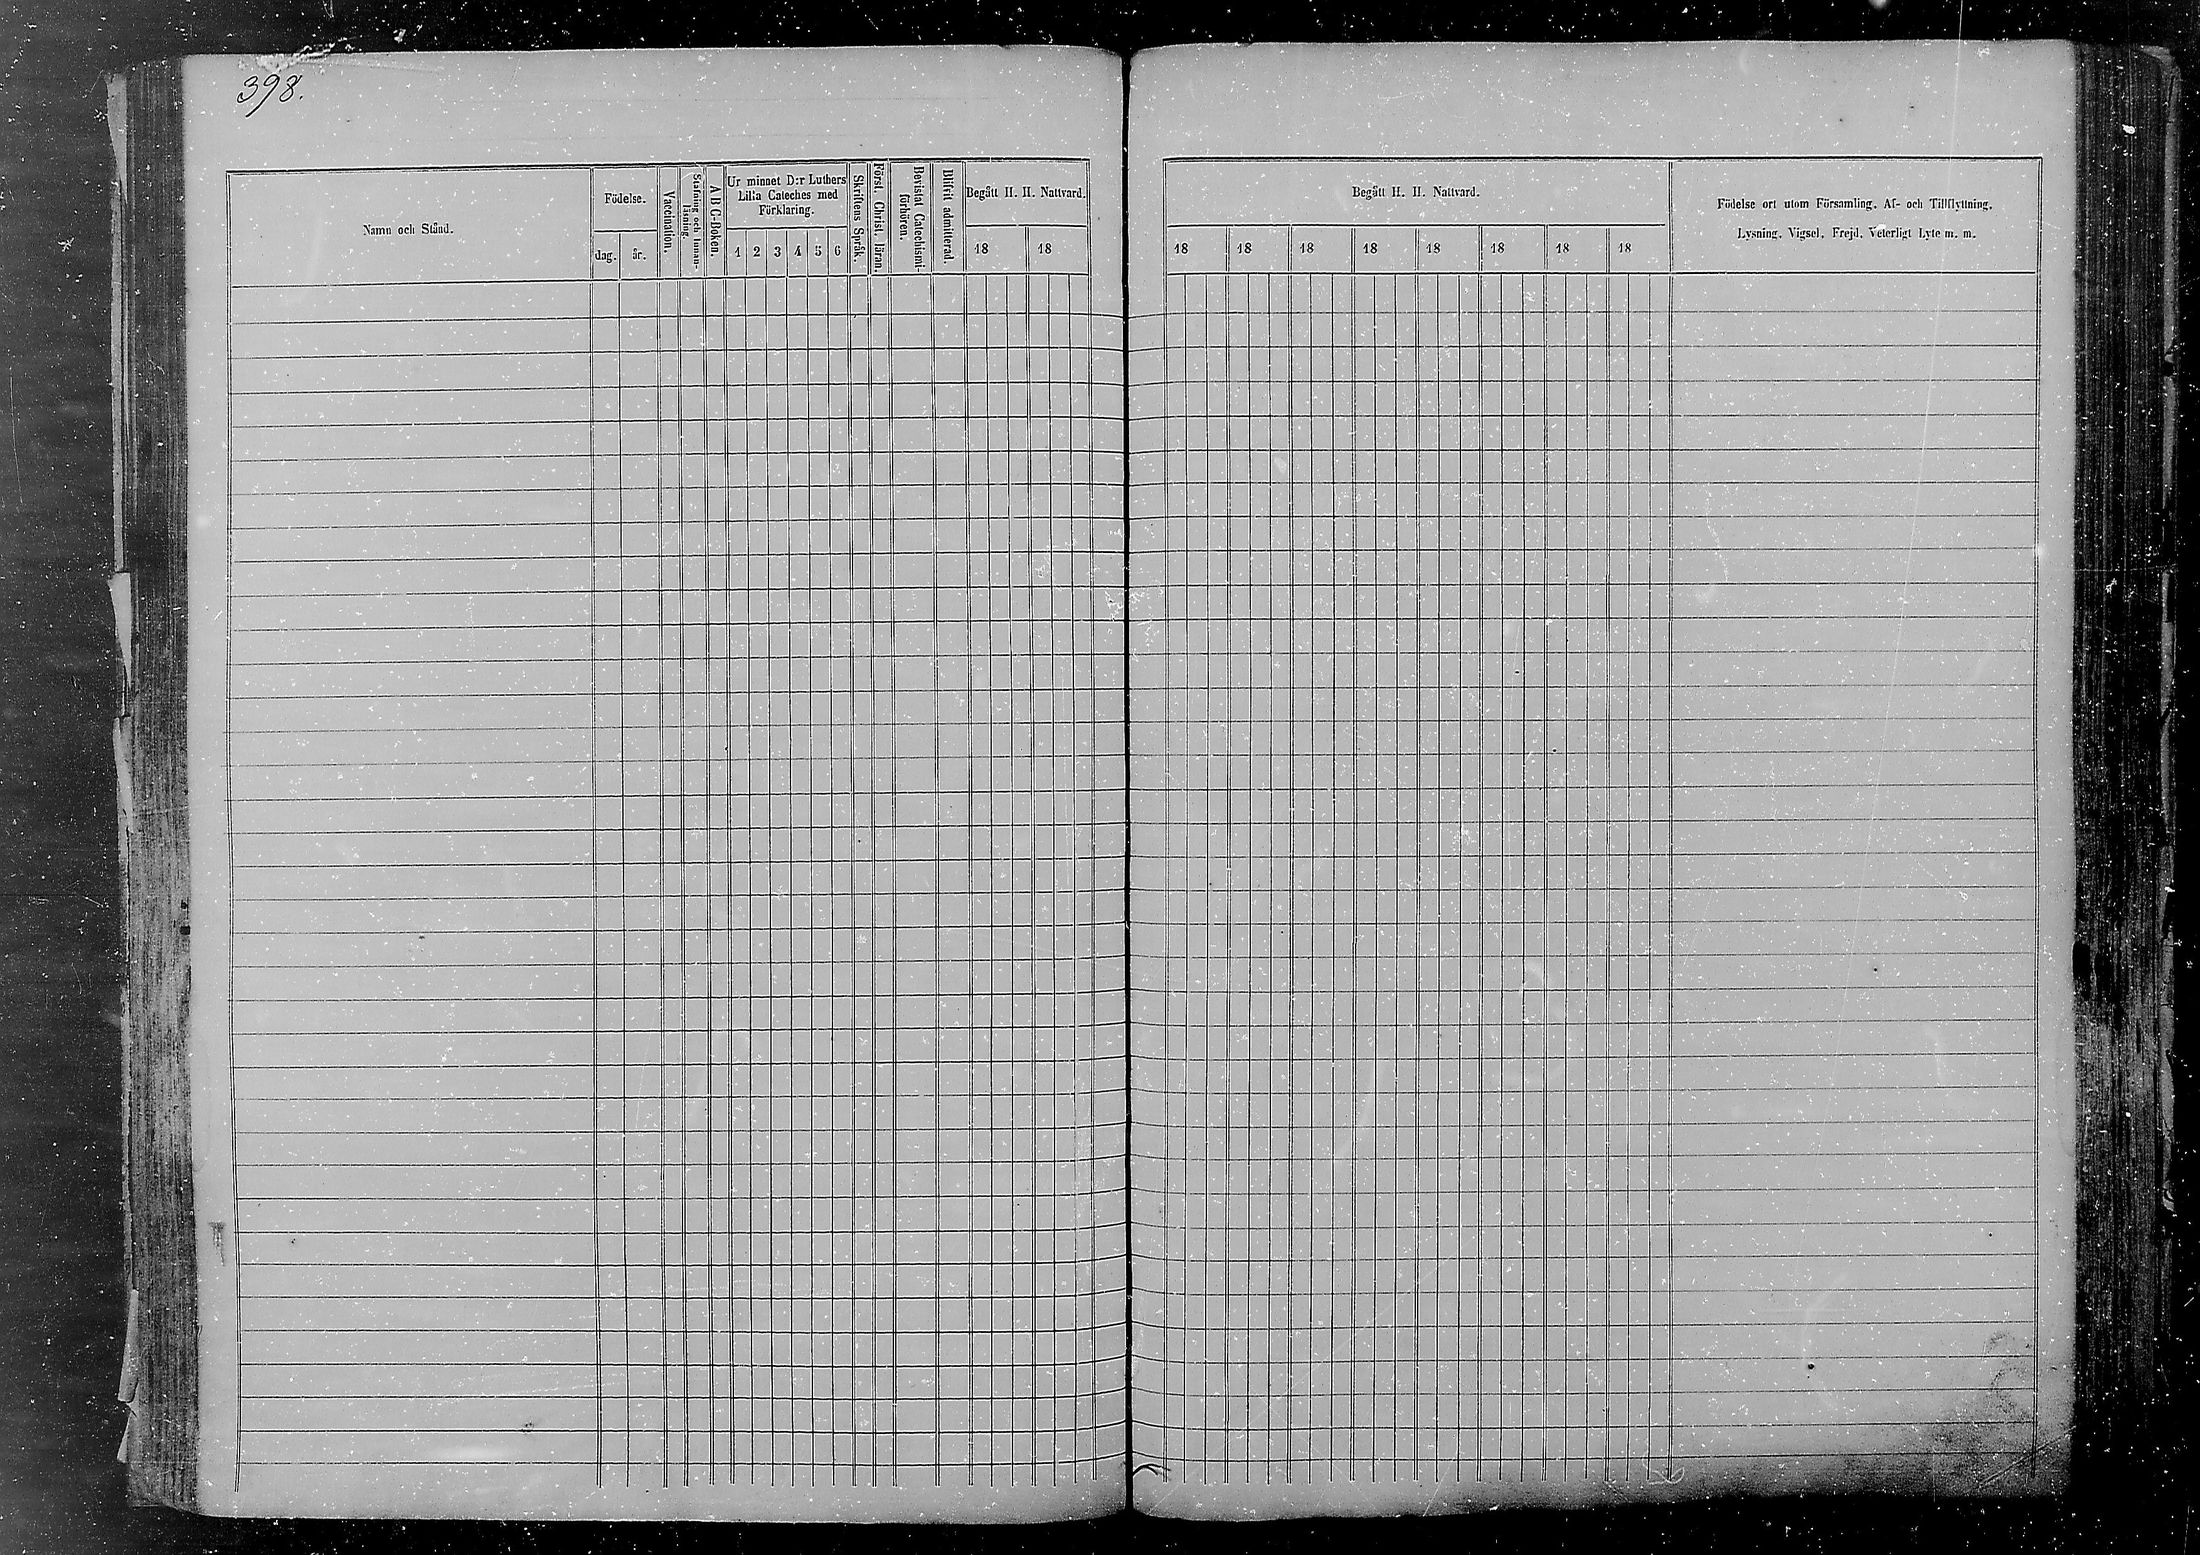 398.
Namn och Stånd.
Födelse.
dag.
år.
Vaccination.
Stafning och Innan-
läsning.
A B C-Boken.
Ur minnet D:r Luthers
Lilla Cateches med
Förklaring.
1 2 3 4 5 6
Skriftens Språk.
Först. Christ. läran.
Bevistat Catechismi-
förhören.
Blifvit admitterad.
Begått H. H. Nattvard.
18 18
Begått H. H. Nattvard.
18 18 18 18 18 18 18 18
Födelse ort utom Församling, Af- och Tillflyttning,
Lysning, Vigsel, Frejd, Veterligt Lyte m. m.